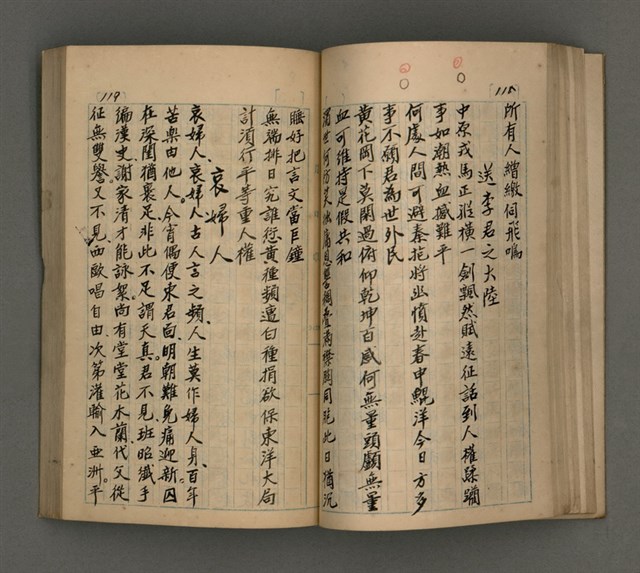 118
所有人繒繳伺飛鳴
送李君之大陸
中原戎馬正縱橫一劍飄然賦遠征話到人權蹂躪
事如潮熱血感難平
何處人間可避秦挖將幽憤赴春申鯤洋今日方多
事不願君為世外民
黃花岡下莫閑過俯仰乾坤百感何無量頭顱無量
血可維持是假共和
此日猶沉
119
睡好把言文當巨鐘
無端排日究誰愆黃種頻遭白種捐欲保東洋大局
計須行平等重人權
哀婦人
哀婦人、哀婦人古人言之頻、人生莫作婦人身、百年
苦樂由他人。今宵偶便東君面、明朝難免痛迎新。囚
在深閨猶裹足非此不足謂天真。君不見班昭纖手
編漢史、謝家清才能詠絮。尚有堂堂花木蘭代父從
征無雙譽又不見西歐唱自由、次第灌輸入亞洲。平